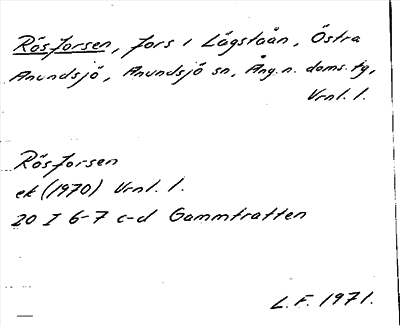 Rösforsen, fors i Lägstaån, Östra
Anundsjö, Anundsjö sn, Ång. n. doms. tg,
Vrnl. l.
Rösforsen
ek (1970) Vrnl. l.
20 I 6-7 c-d Gammtratten
L.F. 1971.